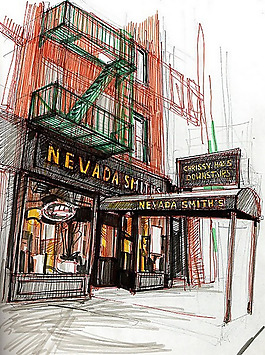 NEVADA SMITH'S
CHRISSY MC'S
DOWNSTAIRS
NEVADA SMITH'S